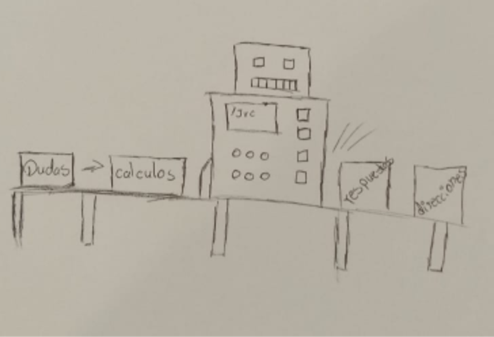 Dudas
calculos
respuestas
direcciones